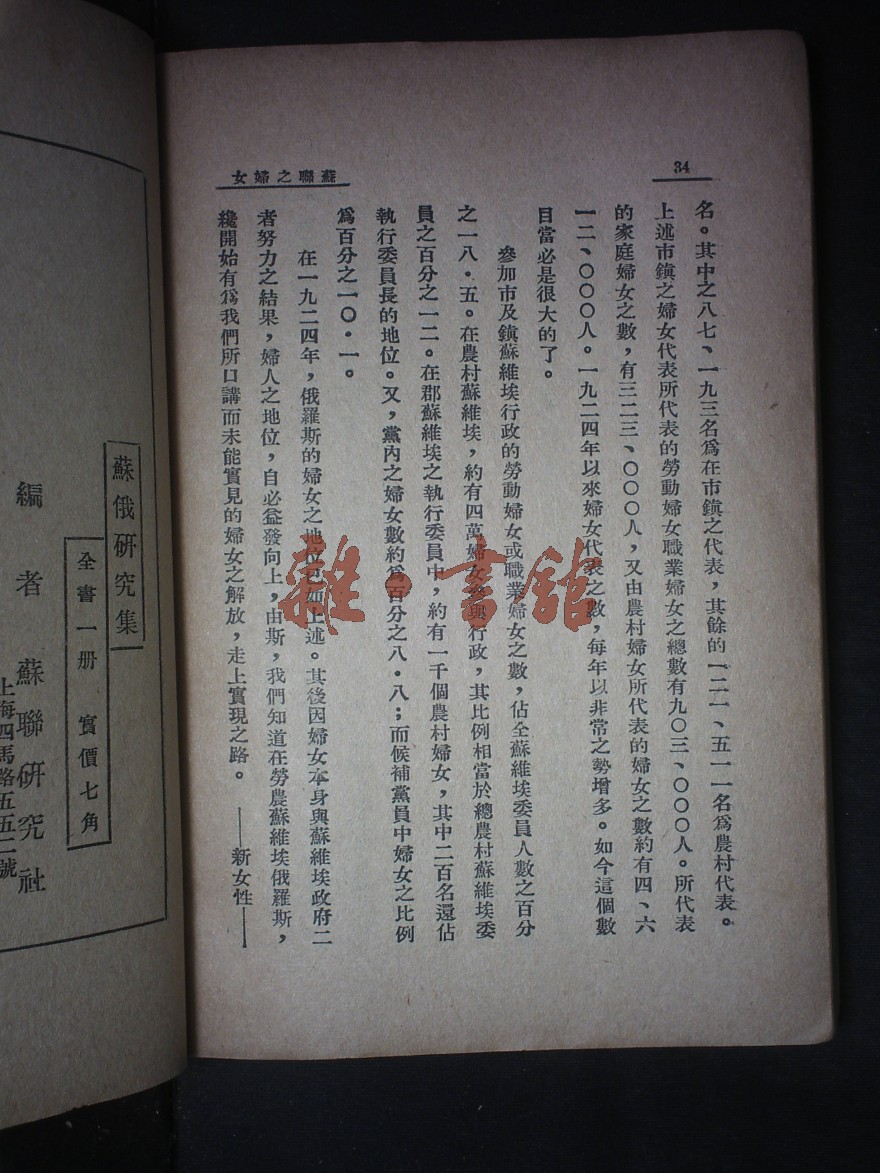 34
蘇聯之婦女
名。其中之八七、一九三名爲在市鎮之代表，其餘的一二一、五一一名爲農村代表。
上述市鎮之婦女代表所代表的勞動婦女職業婦女之總數有九〇三、〇〇〇人。所代表
的家庭婦女之數，有三二三、〇〇〇人，又由農村婦女所代表的婦女之數約有四、六
一二、〇〇〇人。一九二四年以來婦女代表之數，每年以非常之勢增多。如今這個數
目當必是很大的了。
參加市及鎮蘇維埃行政的勞動婦女或職業婦女之數，佔全蘇維埃委員人數之百分
之一八・五。在農村蘇維埃，約有四萬婦女參與行政，其比例相當於總農村蘇維埃委
員之百分之一二。在郡蘇維埃之執行委員中，約有一千個農村婦女，其中二百名還佔
執行委員長的地位。又，黨內之婦女數約爲百分之八・八；而候補黨員中婦女之比例
爲百分之一〇・一。
在一九二四年，俄羅斯的婦女之地位已如上述。其後因婦女本身與蘇維埃政府二
者努力之結果，婦人之地位，自必益發向上，由斯，我們知道在勞農蘇維埃俄羅斯，
纔開始有爲我們所口講而未能實見的婦女之解放，走上實現之路。
——新女性——
雜・書館
蘇俄研究集
全書一册 實價七角
編者 蘇聯研究社
上海四馬路五五二號